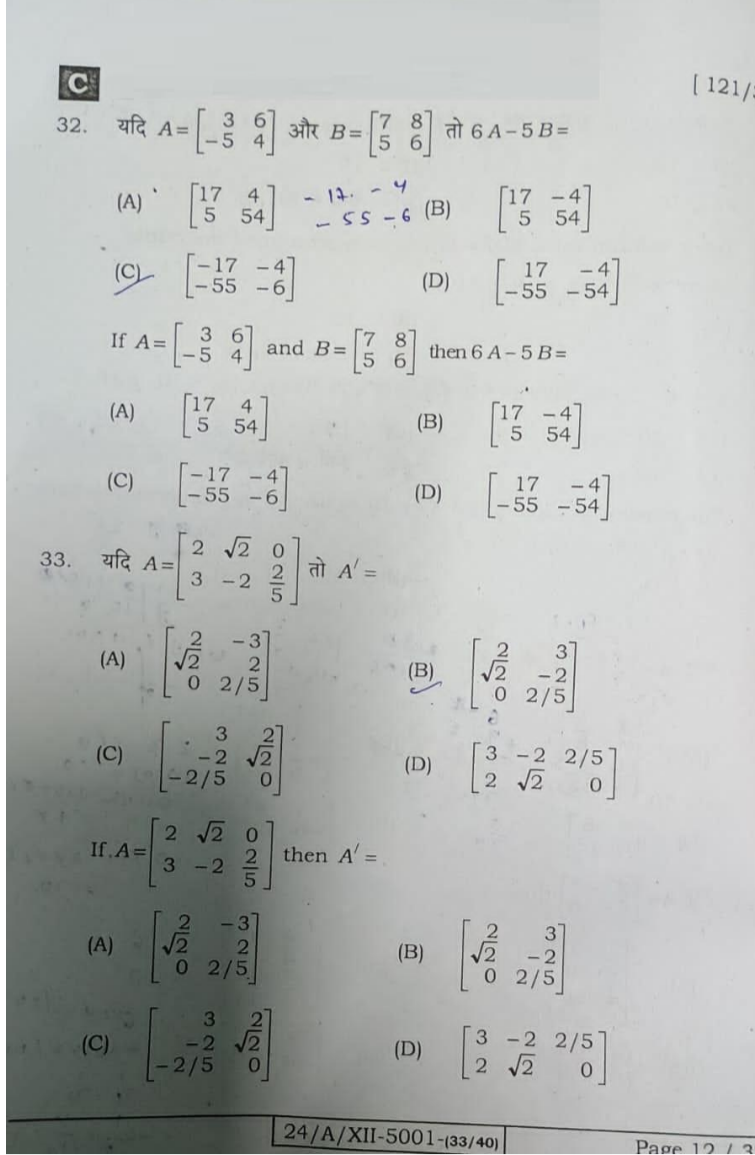 C
[ 121/
32. यदि A = [3 6; -5 4] और B = [7 8; 5 6] तो 6 A - 5 B =
(A) [17 4; 5 54] - 17. - 4 (B) [17 -4; 5 54]
- 55 - 6
(C) [-17 -4; -55 -6] (D) [17 -4; -55 -54]
If A = [3 6; -5 4] and B = [7 8; 5 6] then 6 A - 5 B =
(A) [17 4; 5 54] (B) [17 -4; 5 54]
(C) [-17 -4; -55 -6] (D) [17 -4; -55 -54]
33. यदि A = [2 √2 0; 3 -2 2/5] तो A′ =
(A) [2 -3; √2 2; 0 2/5] (B) [2 3; √2 -2; 0 2/5]
(C) [3 2; -2 √2; -2/5 0] (D) [3 -2 2/5; 2 √2 0]
If A = [2 √2 0; 3 -2 2/5] then A′ =
(A) [2 -3; √2 2; 0 2/5] (B) [2 3; √2 -2; 0 2/5]
(C) [3 2; -2 √2; -2/5 0] (D) [3 -2 2/5; 2 √2 0]
24/A/XII-5001-(33/40)
Page 12 /